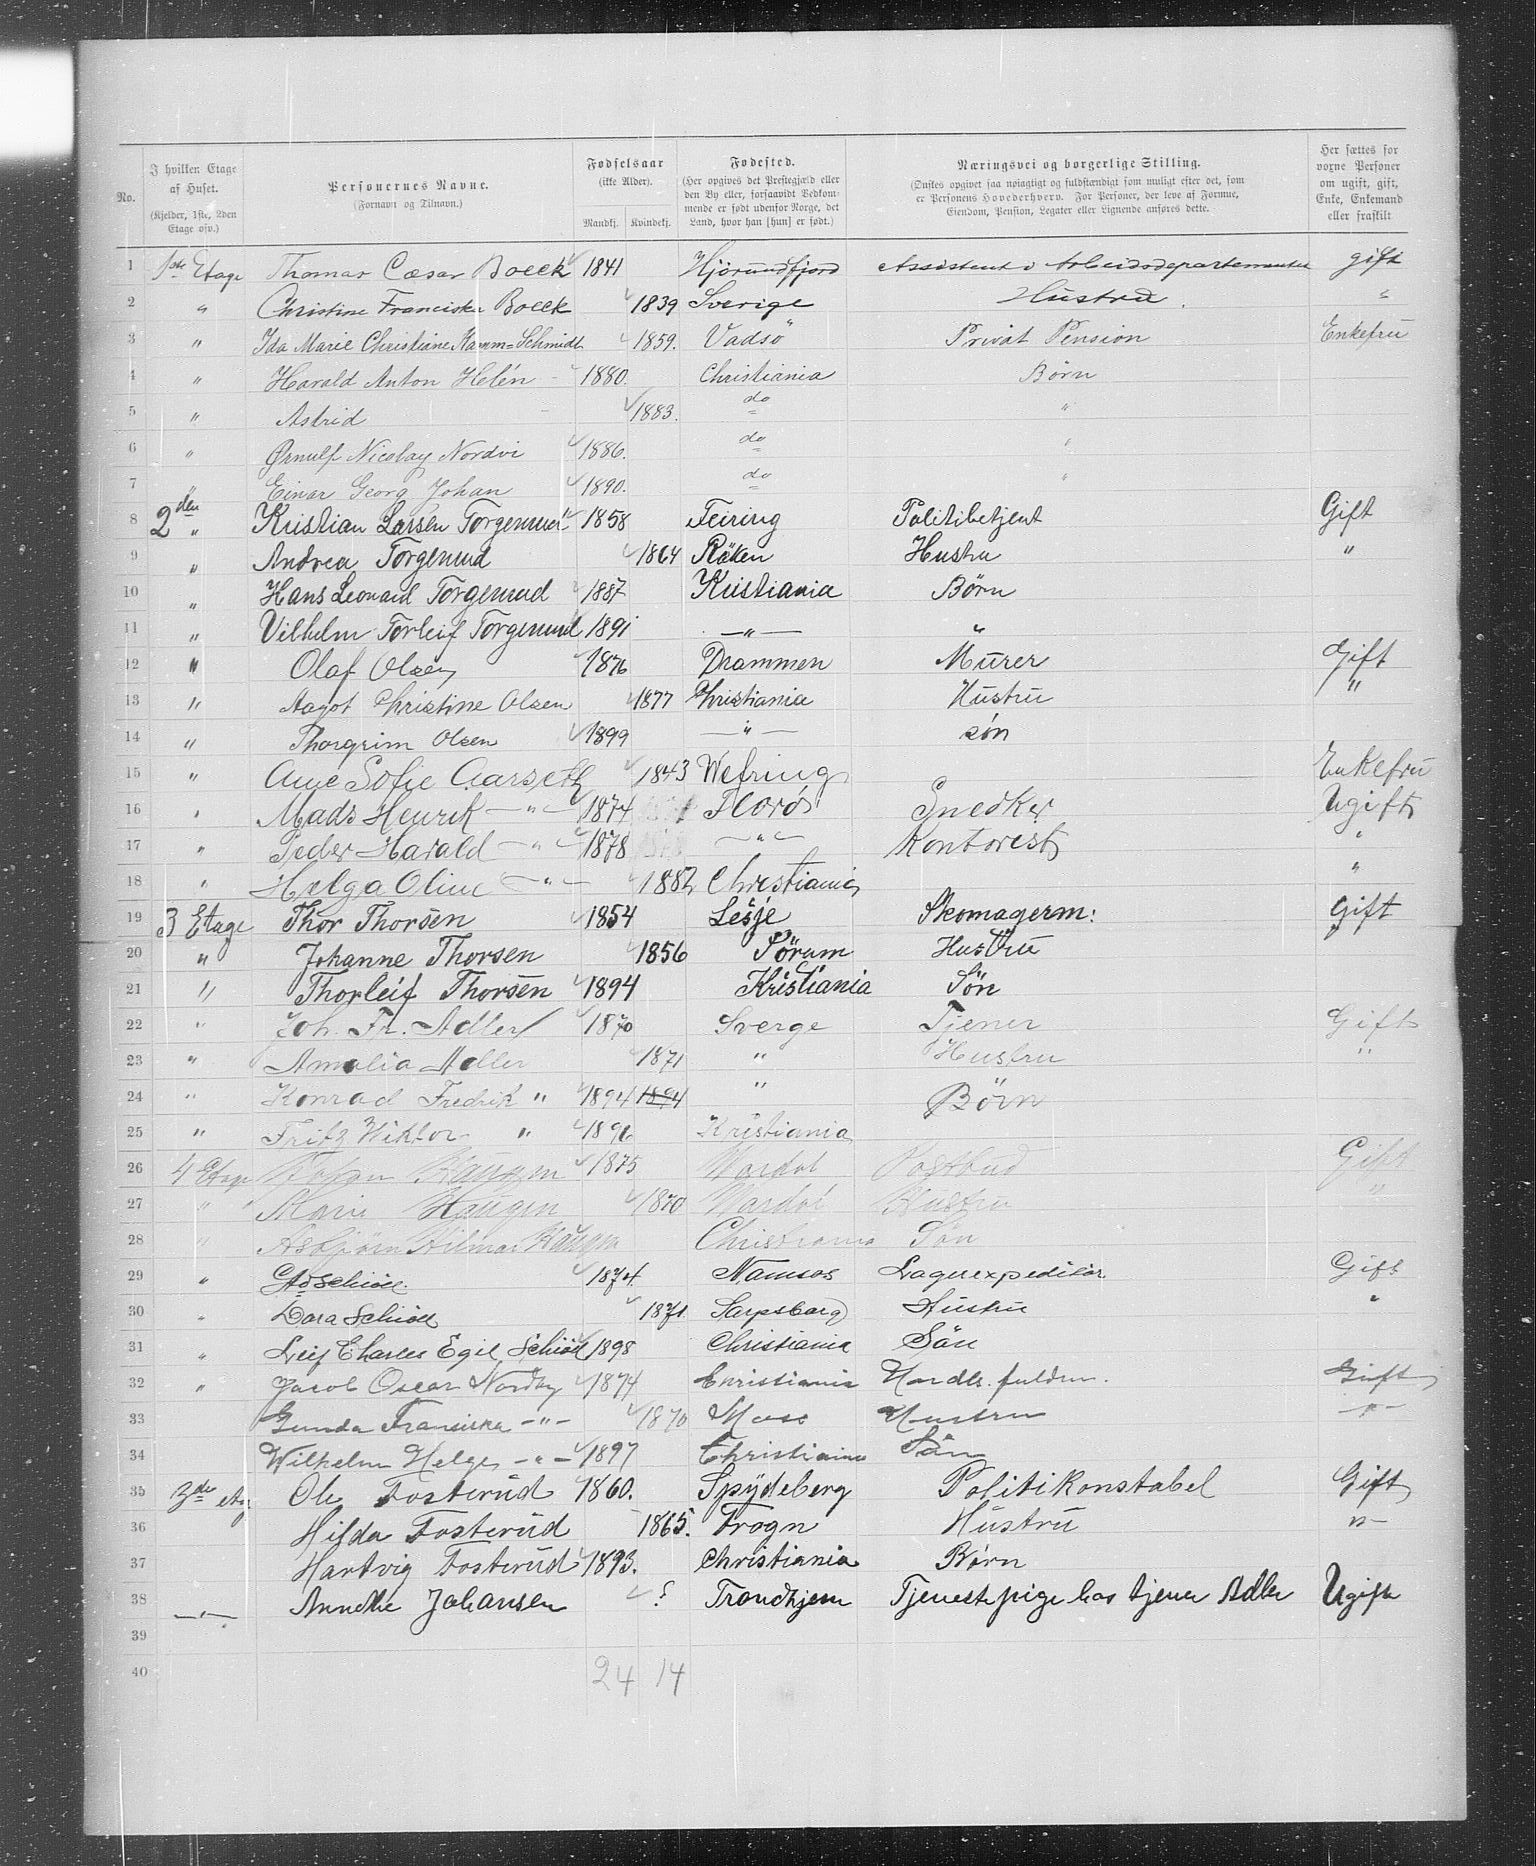 No. | I hvilken Etage af Huset. (Kjelder, 1ste, 2den Etage osv.) | Personernes Navne. (Fornavn og Tilnavn.) | Fødselsaar (ikke Alder). Mandkj. Kvindekj. | Fødested. (Her opgives det Prestegjæld eller den By eller, forsaavidt Vedkommende er født udenfor Norge, det Land, hvor han [hun] er født.) | Næringsvei og borgerlige Stilling. (Ønskes opgivet saa nøiagtigt og fuldstændigt som muligt efter det, som er Personens Hovederhverv. For Personer, der leve af Formue, Eiendom, Pension, Legater eller Lignende anføres dette.) | Her sættes for voxne Personer om ugift, gift, Enke, Enkemand eller fraskilt
1 1ste Etage Thomas Cæsar Boeck 1841 Hjörundfjord Assistent i Arbeidsdepartementet gift
2 " Christine Franciska Boeck 1839 Sverige Hustru "
3 " Ida Marie Christiane Hamm=Schmidt 1859. Vadsö Privat Pension Enkefru
4 " Harald Anton Helén 1880. Christiania Börn
5 " Astrid 1883. do "
6 " Ørnulf Nicolay Nordvi 1886. do "
7 " Einar Georg Johan 1890. do "
8 2den " Kristian Larsen Torgerrud 1858 Feiring Politibetjent Gift
9 " Andrea Torgerrud 1864 Röken Hustru "
10 " Hans Leonard Torgerrud 1887 Kristiania Börn
11 " Vilhelm Torleif Torgerrud 1891 —"— "
12 " Olaf Olsen 1876 Drammen Murer Gift
13 " Aagot Christine Olsen 1877 Christiania Hustru "
14 " Thorgrim Olsen 1899 —"— sön
15 " Ane Sofie Aarseth 1843 Wefring Enkefru
16 " Mads Henrik —"— 1874 Florö Snedker Ugift
17 " Peder Harald —"— 1878 —"— Kontorest "
18 " Helga Oline —"— 1882 Christiania "
19 3 Etage Thor Thorsen 1854 Lesje Skomagerm: Gift
20 " Johanne Thorsen 1856 Sörum Hustru "
21 " Thorleif Thorsen 1894 Kristiania Sön
22 " Joh. Fr. Adler 1870 Sverge Tjener Gift
23 " Amalia Adler 1871 " Hustru "
24 " Konrad Fredrik " 1894 1894 " Börn
25 " Fritz Viktor " 1896 Kristiania
26 4 Etage Haugen 1875 Postbud Gift
27 " Marie Haugen 1870 Hustru "
28 " Asbjörn Hilmar Haugen Christiania Sön
29 " Schiöll 1874. Namsos Lagerexpeditör Gift
30 " Dora Schiöll 1871 Sarpsborg Hustru "
31 " Leif Charles Egil Schiöll 1898 Christiania Sön
32 " Jacob Oscar Nordby 1874 Christiania Handls. fuldm. Gift
33 Gunda Fransiska —"— 1870 Moss Hustru —"—
34 Wilhelm Helge —"— 1897 Christiania Sön
35 3die etg Ole Fosterud 1860. Spydeberg Politikonstabel Gift
36 Hilda Fosterud 1865. Frogn Hustru "
37 Hartvig Fosterud 1893. Christiania Börn
38 —"— Annethe Johansen ? Trondhjem Tjenestepige hos tjener Adler Ugift
39
40 24 14